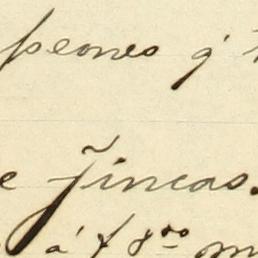 peones q'
e fincas.
á $ 8.00 m